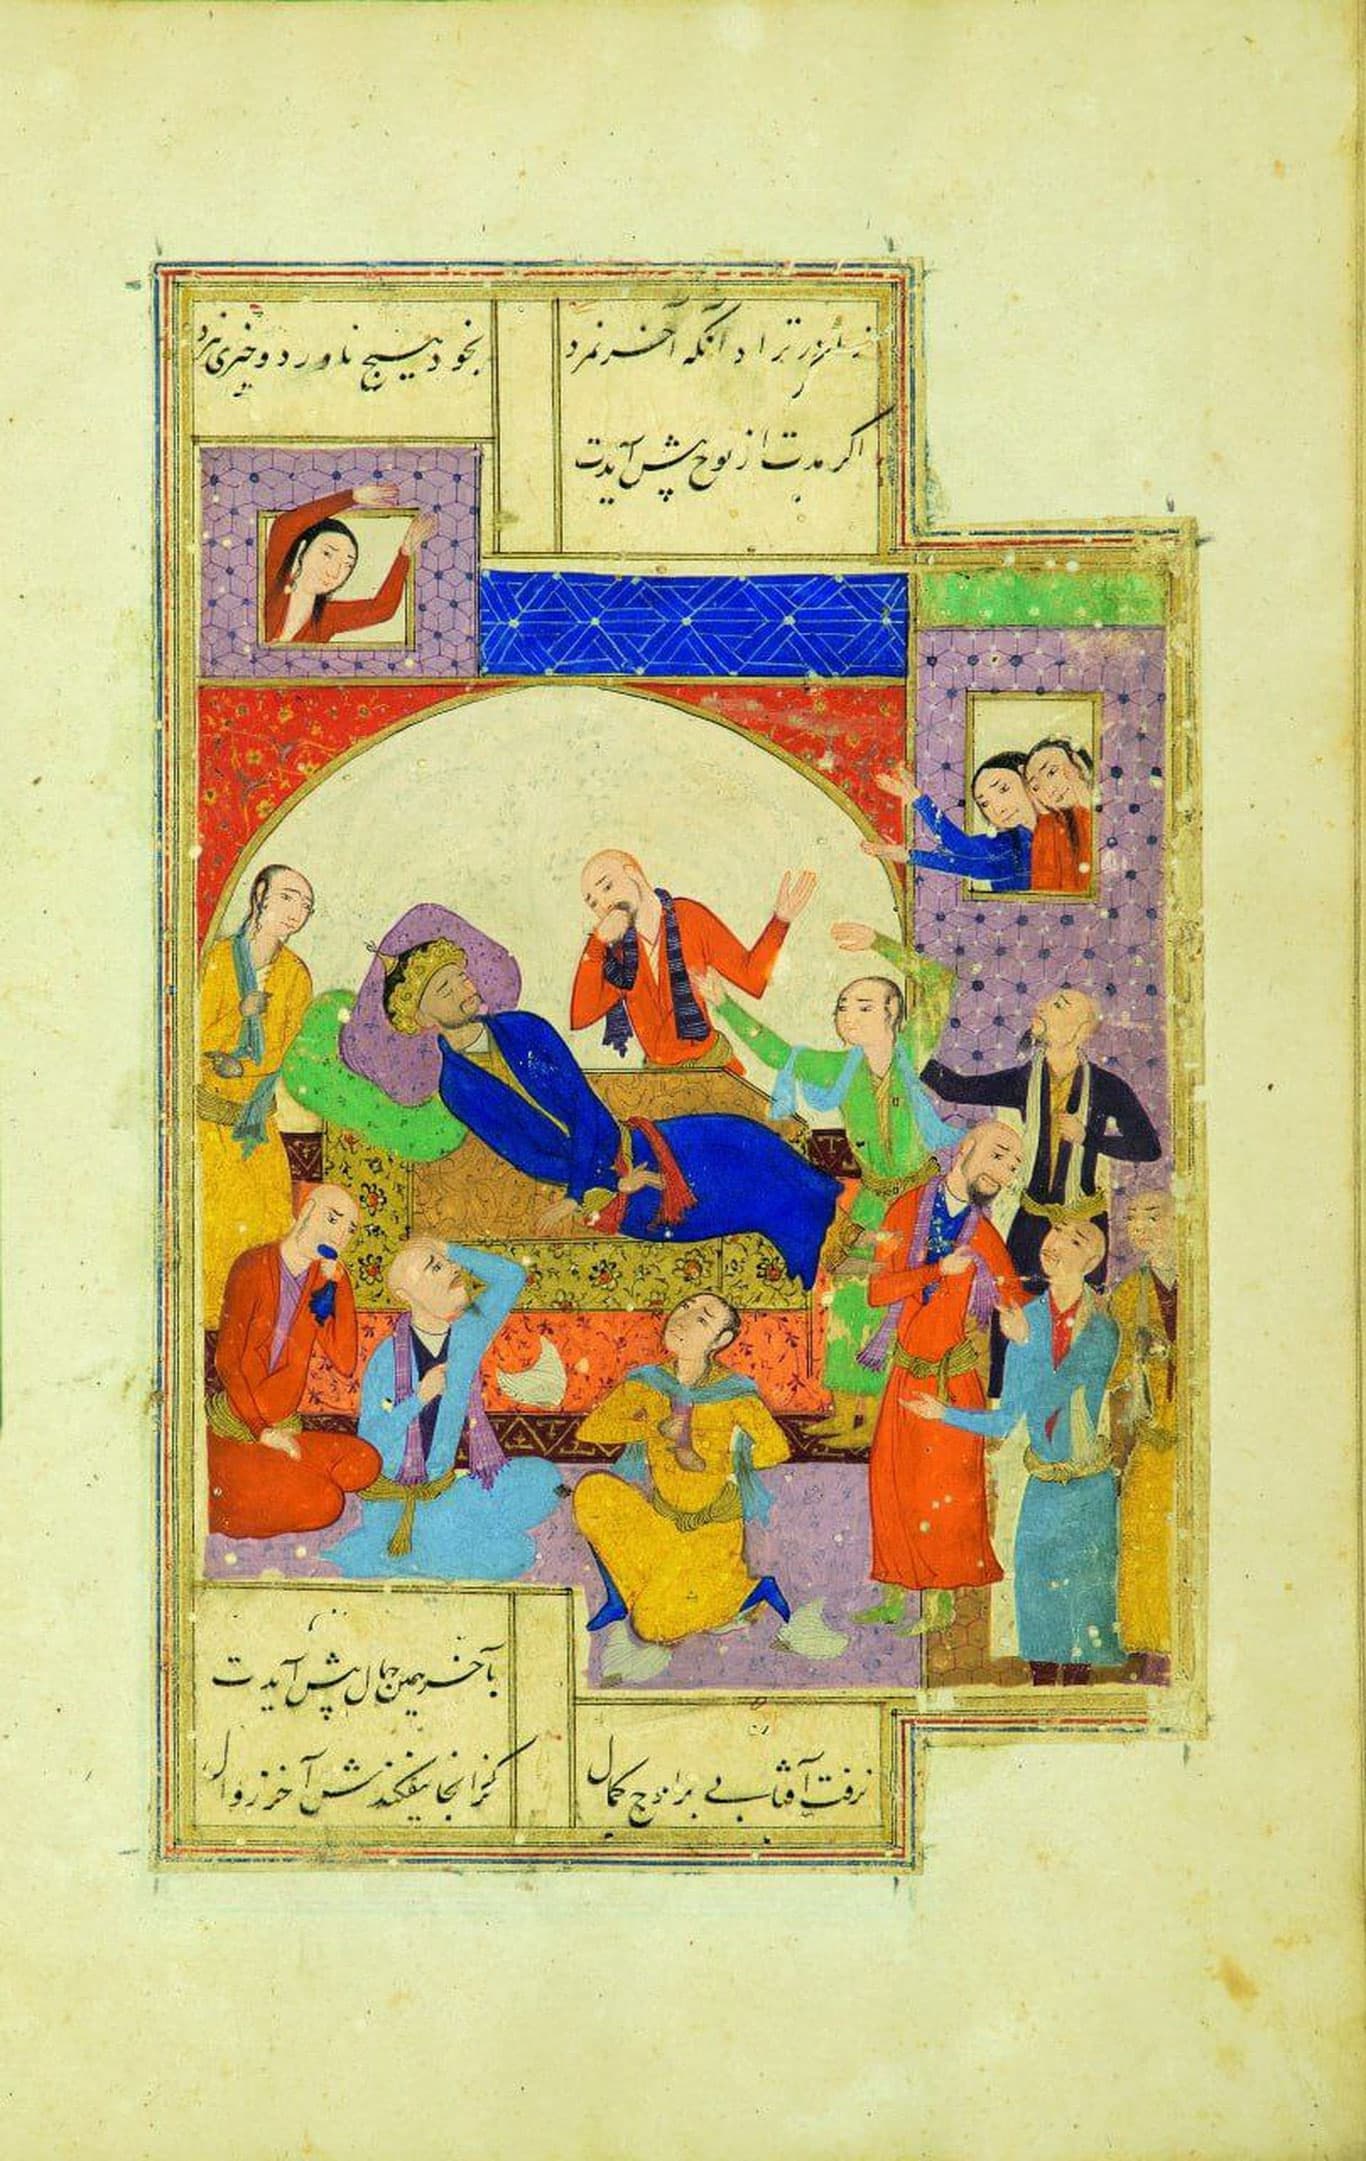 ز مادر نزاد آنکه آخر نمرد
بخود هیچ ناورد و چیزی نبرد
اگر مدت از نوح پیش آیدت
بآخر همین حال پیش آیدت
نرفت آفتابی بر اوج کمال
کز انجا نیفکندش آخر زوال